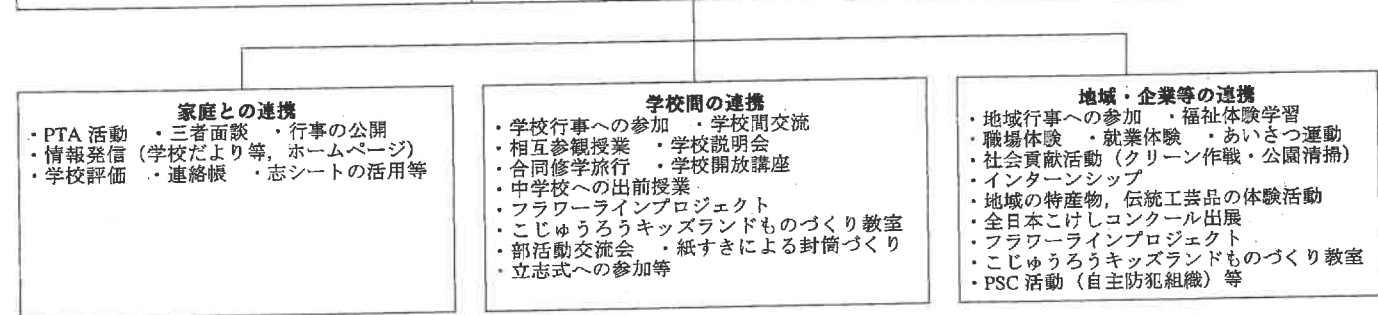 家庭との連携
・PTA 活動 ・三者面談 ・行事の公開
・情報発信（学校だより等，ホームページ）
・学校評価 ・連絡帳 ・志シートの活用等
学校間の連携
・学校行事への参加 ・学校間交流
・相互参観授業 ・学校説明会
・合同修学旅行 ・学校開放講座
・中学校への出前授業
・フラワーラインプロジェクト
・こじゅうろうキッズランドものづくり教室
・部活動交流会 ・紙すきによる封筒づくり
・立志式への参加等
地域・企業等の連携
・地域行事への参加 ・福祉体験学習
・職場体験 ・就業体験 ・あいさつ運動
・社会貢献活動（クリーン作戦・公園清掃）
・インターンシップ
・地域の特産物，伝統工芸品の体験活動
・全日本こけしコンクール出展
・フラワーラインプロジェクト
・こじゅうろうキッズランドものづくり教室
・PSC 活動（自主防犯組織）等